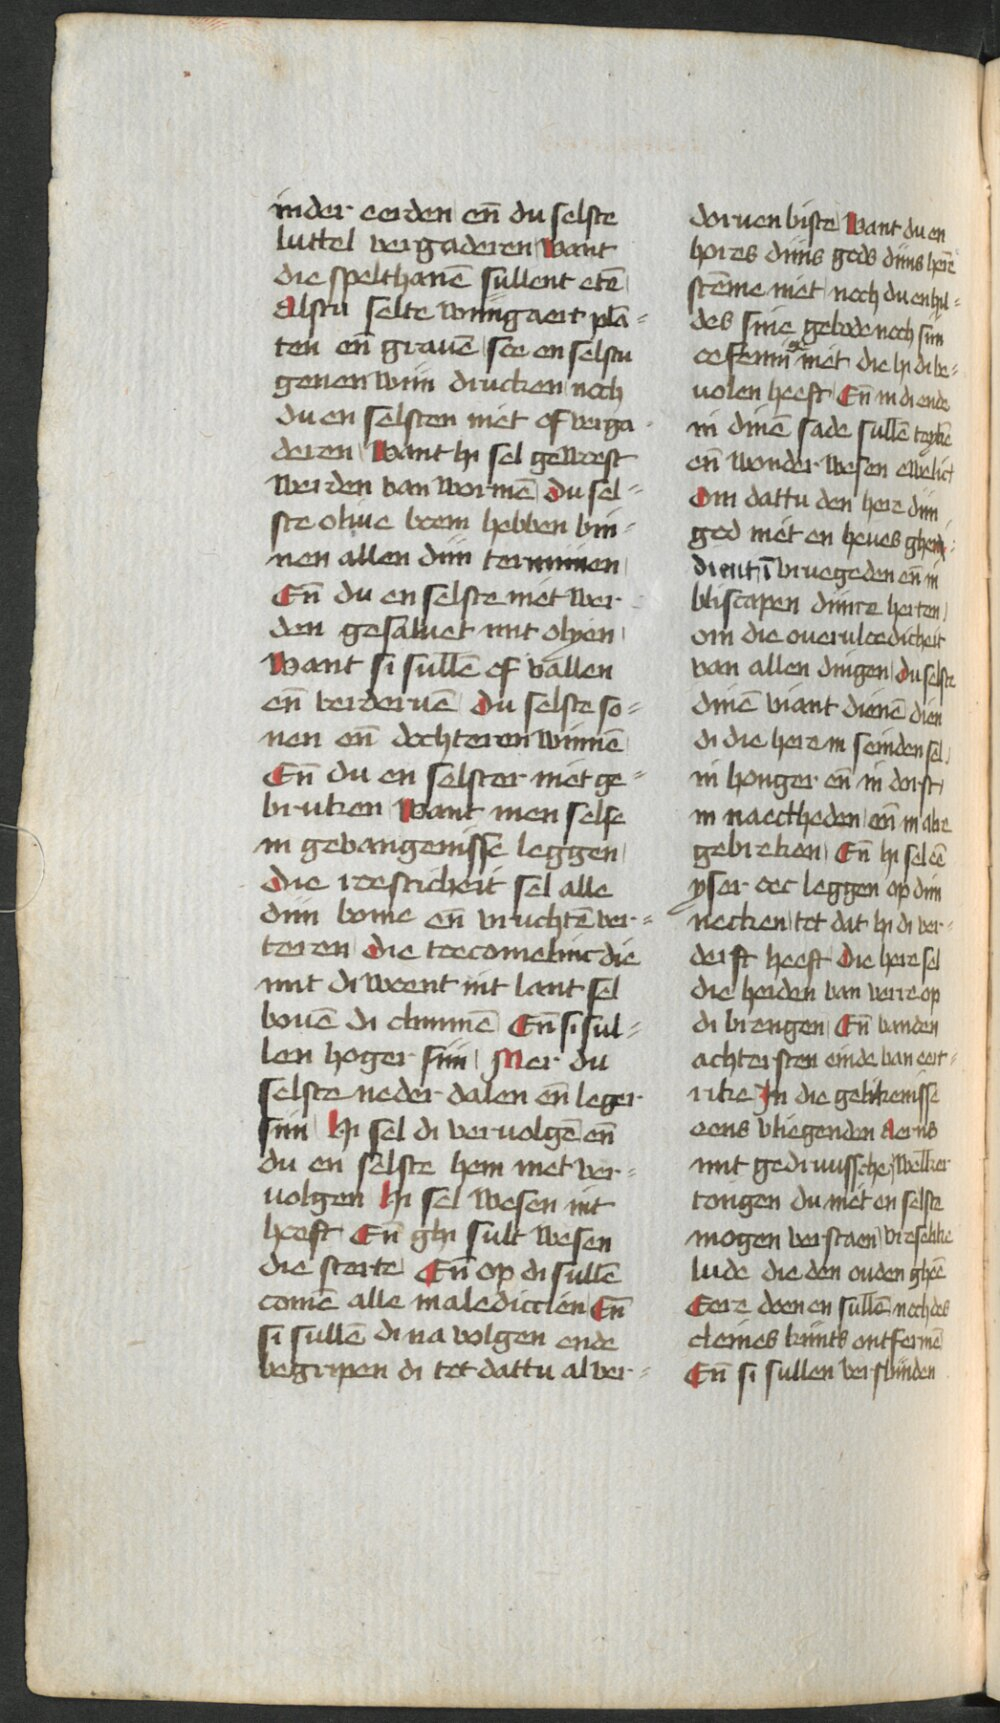 in der eerden en̄ du selste
luttel vergaderen want
die spelthanē sullent etē
Alstu selte wijngaert plā=
ten en̄ gravē soe en selstu
genen wijn drucken noch
du en selsten niet of verga-
deren want hi sel gewoest
werden van wormē du sel=
ste olive boem hebben bin=
nen allen dijn terminen
En̄ du en selste niet wer-
den gesalvet mit olyen
want si sullē of vallen
en̄ verdervē du selste so=
nen en̄ dochteren winnē
En̄ du en selster niet ge=
bruken want men selse
in gevangenisse leggen
die roesticheit sel alle
dijn bome en̄ vruchtē ver=
teren die toecomelinc die
mit di woent int lant sel
bovē di climmē En̄ si sul=
len hoger sijn Mer du
selste neder dalen en̄ leger
sijn hi sel di vervolgē en̄
du en selste hem niet ver=
volgen hi sel wesen int
heeft En̄ ghi sult wesen
die sterte En̄ op di sullē
comē alle maledictien En̄
si sullē di na volgen ende
begripen di tot dattu al ver=
dorven biste want du en
hores dijns gods dijns herē
stēme niet noch du en hu=
des sine gebode noch sijn
oefenin niet die hi di be=
volen heeft En̄ in di ende
in dinē sade sullē teykē
en̄ wonder wesen ewelict
Om dattu den here dijn
god niet en heves ghe
dient ī vruegeden en̄ in
bliscapen dijnre herten
om die overvloedicheit
van allen dingen du selste
dinē viant dienē dien
di die here in seinden sel
in honger en̄ in dorst
in naectheden en̄ in alre
gebreken En̄ hi sel ē
yser oec leggen op dijn
necken tot dat hi di ver-
derft heeft die here sel
die heiden van verre op
di brengen En̄ vanden
achtersten einde van eert-
rike In die gelikenisse
eens vliegenden Aerns
mit gedruussche welker
tongen du niet en selste
mogen verstaen vreselike
lude die den ouden gheē
Eere doen en sullē noch des
cleines kints ontfermē
En̄ si sullen verslijnden